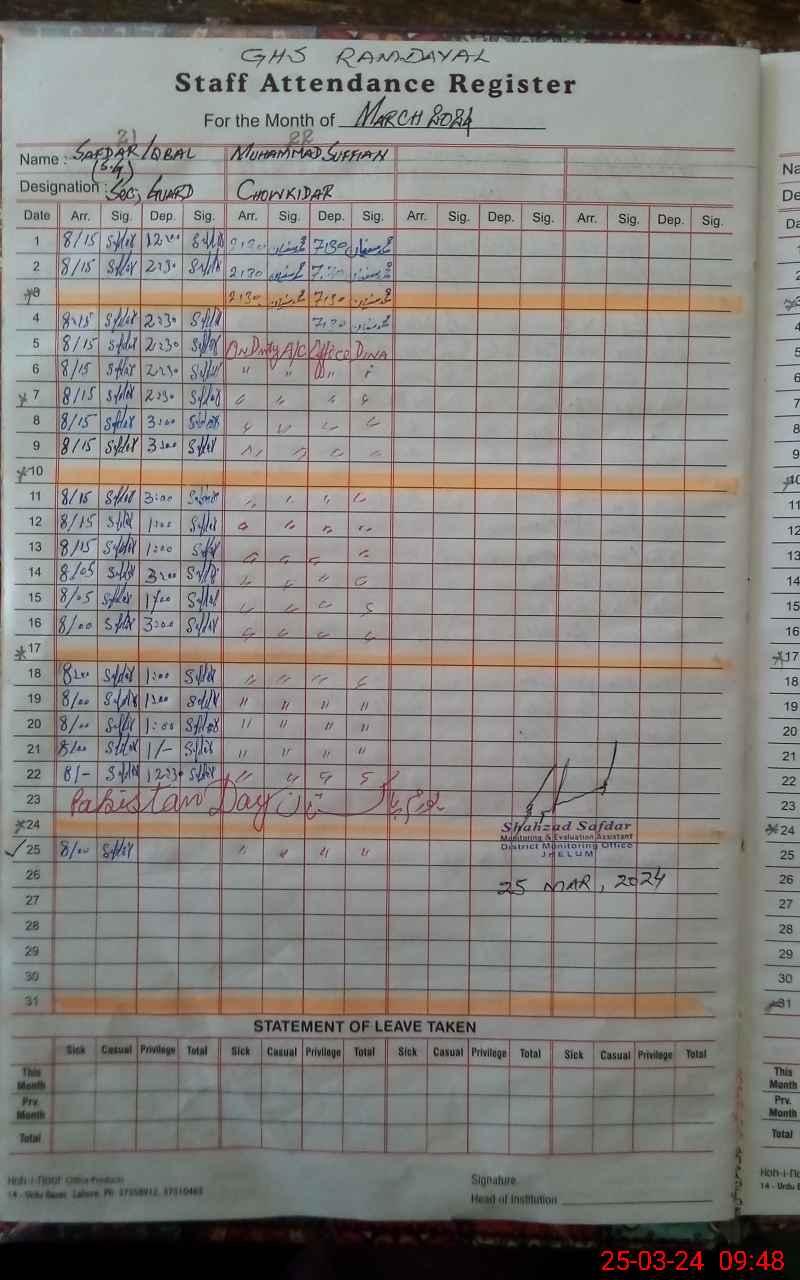 GHS RAMDAYAL
Staff Attendance Register
For the Month of MARCH 2024
21 22
Name : SAFDAR IQBAL MUHAMMAD SUFFIAN
(S.G)
Designation : Sec, GUARD CHOWKIDAR
Date Arr. Sig. Dep. Sig. Arr. Sig. Dep. Sig. Arr. Sig. Dep. Sig. Arr. Sig. Dep. Sig.
1 8/15 Safdar 12:00 Safdar 2:30 محمد سفیان 7:30 محمد سفیان
2 8/15 Safdar 2:30 Safdar 2:30 محمد سفیان 7:30 محمد سفیان
*3 2:30 محمد سفیان 7:30 محمد سفیان
4 8:15 Safdar 2:30 Safdar 7:30 محمد سفیان
5 8/15 Safdar 2:30 Safdar On Duty A/C Office DINA
6 8/15 Safdar 2:30 Safdar " " " "
*7 8/15 Safdar 2:30 Safdar " " " "
8 8/15 Safdar 3:00 Safdar " " " "
9 8/15 Safdar 3:00 Safdar " " " "
*10
11 8/15 Safdar 3:00 Safdar " " " "
12 8/15 Safdar 1:00 Safdar " " " "
13 8/15 Safdar 1:00 Safdar " " " "
14 8/05 Safdar 3:00 Safdar " " " "
15 8/05 Safdar 1/00 Safdar " " " "
16 8/00 Safdar 3:00 Safdar " " " "
*17
18 8:00 Safdar 1:00 Safdar " " " "
19 8/00 Safdar 1:00 Safdar " " " "
20 8/00 Safdar 1:00 Safdar " " " "
21 8/00 Safdar 1/- Safdar " " " "
22 8/- Safdar 12:30 Safdar " " " "
23 Pakistan Day
*24
25 8/00 Safdar " " " "
Shahzad Safdar
Monitoring & Evaluation Assistant
District Monitoring Office
JHELUM
25 MAR, 2024
26
27
28
29
30
31
STATEMENT OF LEAVE TAKEN
Sick Casual Privilege Total Sick Casual Privilege Total Sick Casual Privilege Total Sick Casual Privilege Total
This Month
Prv. Month
Total
Hoh-i-Noor Office Products
14 - Urdu Bazar, Lahore. Ph: 37358912, 37310465
Signature
Head of Institution
Na
De
Da
1
2
4
5
6
7
8
9
*10
11
12
13
14
15
16
*17
18
19
20
21
22
23
*24
25
26
27
28
29
30
*31
This Month
Prv. Month
Total
Hoh-i-
14 - Urdu
25-03-24 09:48